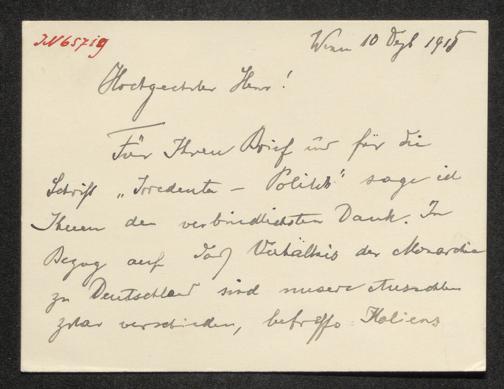 IN 65719
Wien 10 Dezb 1915
Hochgeehrter Herr!
Für Ihren Brief und für die
Schrift „Irredenta – Politik" sage ich
Ihnen den verbindlichsten Dank. In
Bezug auf das Verhältnis der Monarchie
zu Deutschland sind unsere Ansichten
zwar verschieden, betreffs Italiens